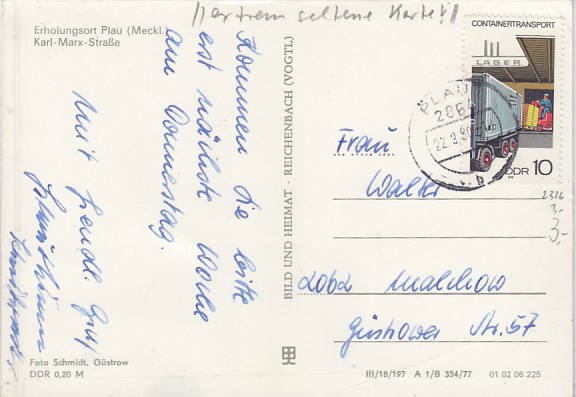 !! extrem seltene Karte !!
Erholungsort Plau (Meckl.)
Karl-Marx-Straße
Kommen Sie bitte
erst nächste Woche
am Donnerstag.
Mit freundl. Gruß
Foto Schmidt, Güstrow
DDR 0,20 M
BILD UND HEIMAT · REICHENBACH (VOGTL)
CONTAINERTRANSPORT
LAGER
DDR 10
PLAU
2864
22.8.80
b
Frau
Walter
2062 Malchow
Güstrower Str. 57
2326
3,-
3,-
III/18/197 A 1/B 354/77 01 02 06 225